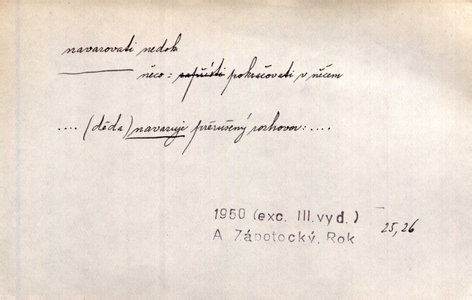 navazovati nedok
něco = započísti pokračovati v něčem
.... (děda) navazuje přerušený rozhovor: ....
1950 (exc. III. vyd.)
A Zápotocký, Rok 25,26